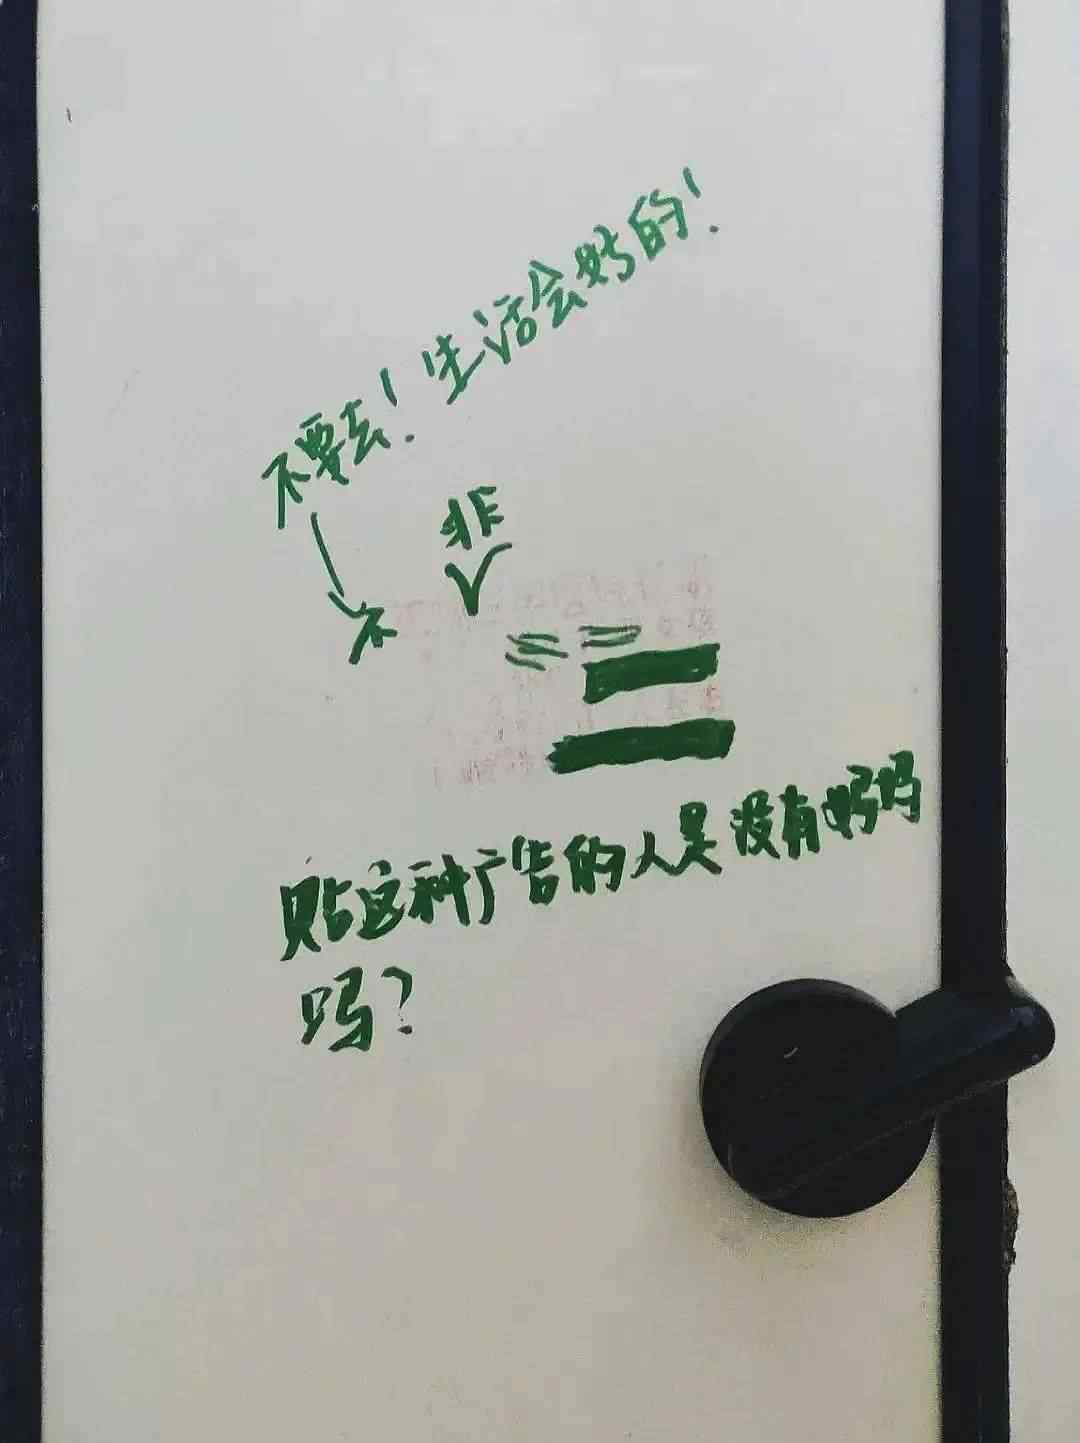 不要去！生活会好的！
非
不
贴这种广告的人是没有妈妈
吗？